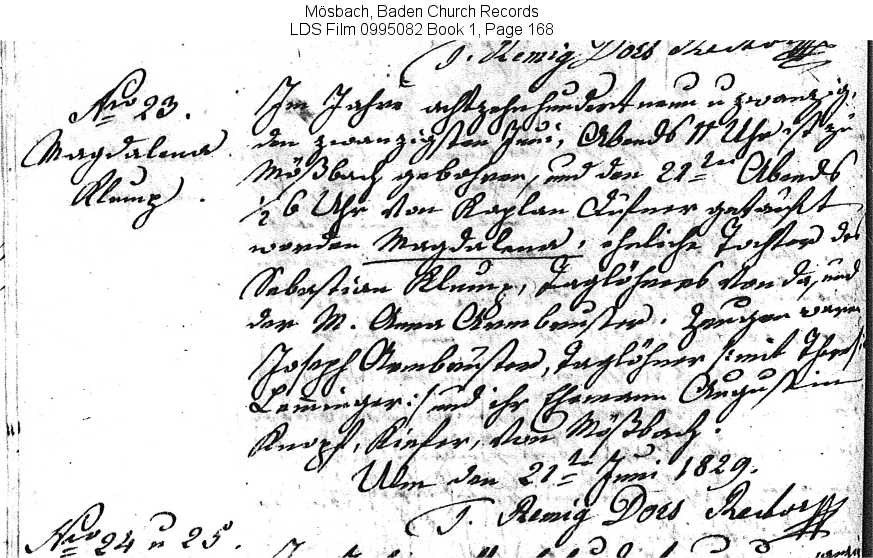 Mösbach, Baden Church Records
LDS Film 0995082 Book 1, Page 168
T. Remig Dors Rector
Nro 23.
Magdalena
Klump.
Im Jahre achtzehnhundert neun u zwanzig,
den zwanzigsten Juni, Abends 11 Uhr ist zu
Mößbach gebohren, und den 21ten Abends
½ 6 Uhr von Kaplan getauft
worden Magdalena, ehliche Tochter des
Sebastian Klump, Taglöhners von da, und
der M. Anna Armbruster. Zeugen waren
Joseph Armbruster, Taglöhner /: mit Theres
:/ und ihr Ehemann Augustin
Knopf, Kiefer, von Mößbach.
Ulm den 21ten Juni 1829.
T. Remig Dors Rector
Nro 24 u 25.